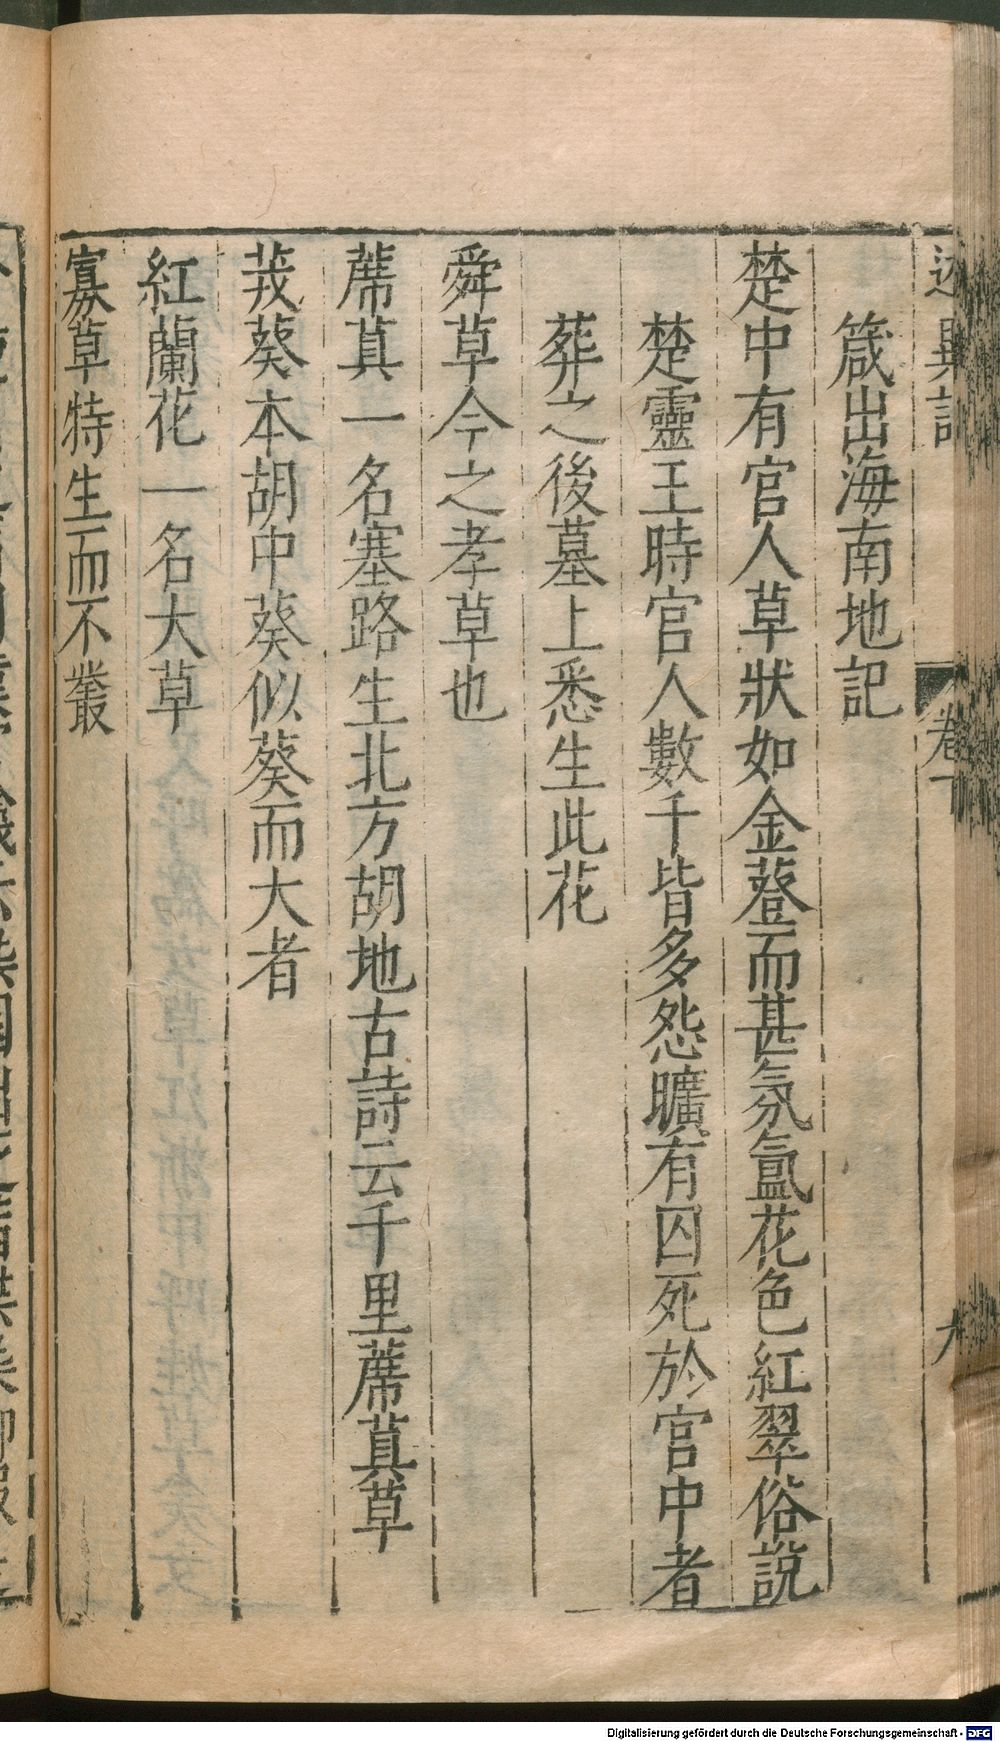 述異記 卷下 九
箴出海南地記
楚中有宮人草狀如金蔆而甚氛氲花色紅翠俗說
楚靈王時官人數千皆多怨曠有囚死於宮中者
葬之後墓上悉生此花
舜草今之孝草也
蓆萁一名塞路生北方胡地古詩云千里蓆萁草
茙葵本胡中葵似葵而大者
紅蘭花一名大草
寡草特生而不叢
Digitalisierung gefördert durch die Deutsche Forschungsgemeinschaft - DFG